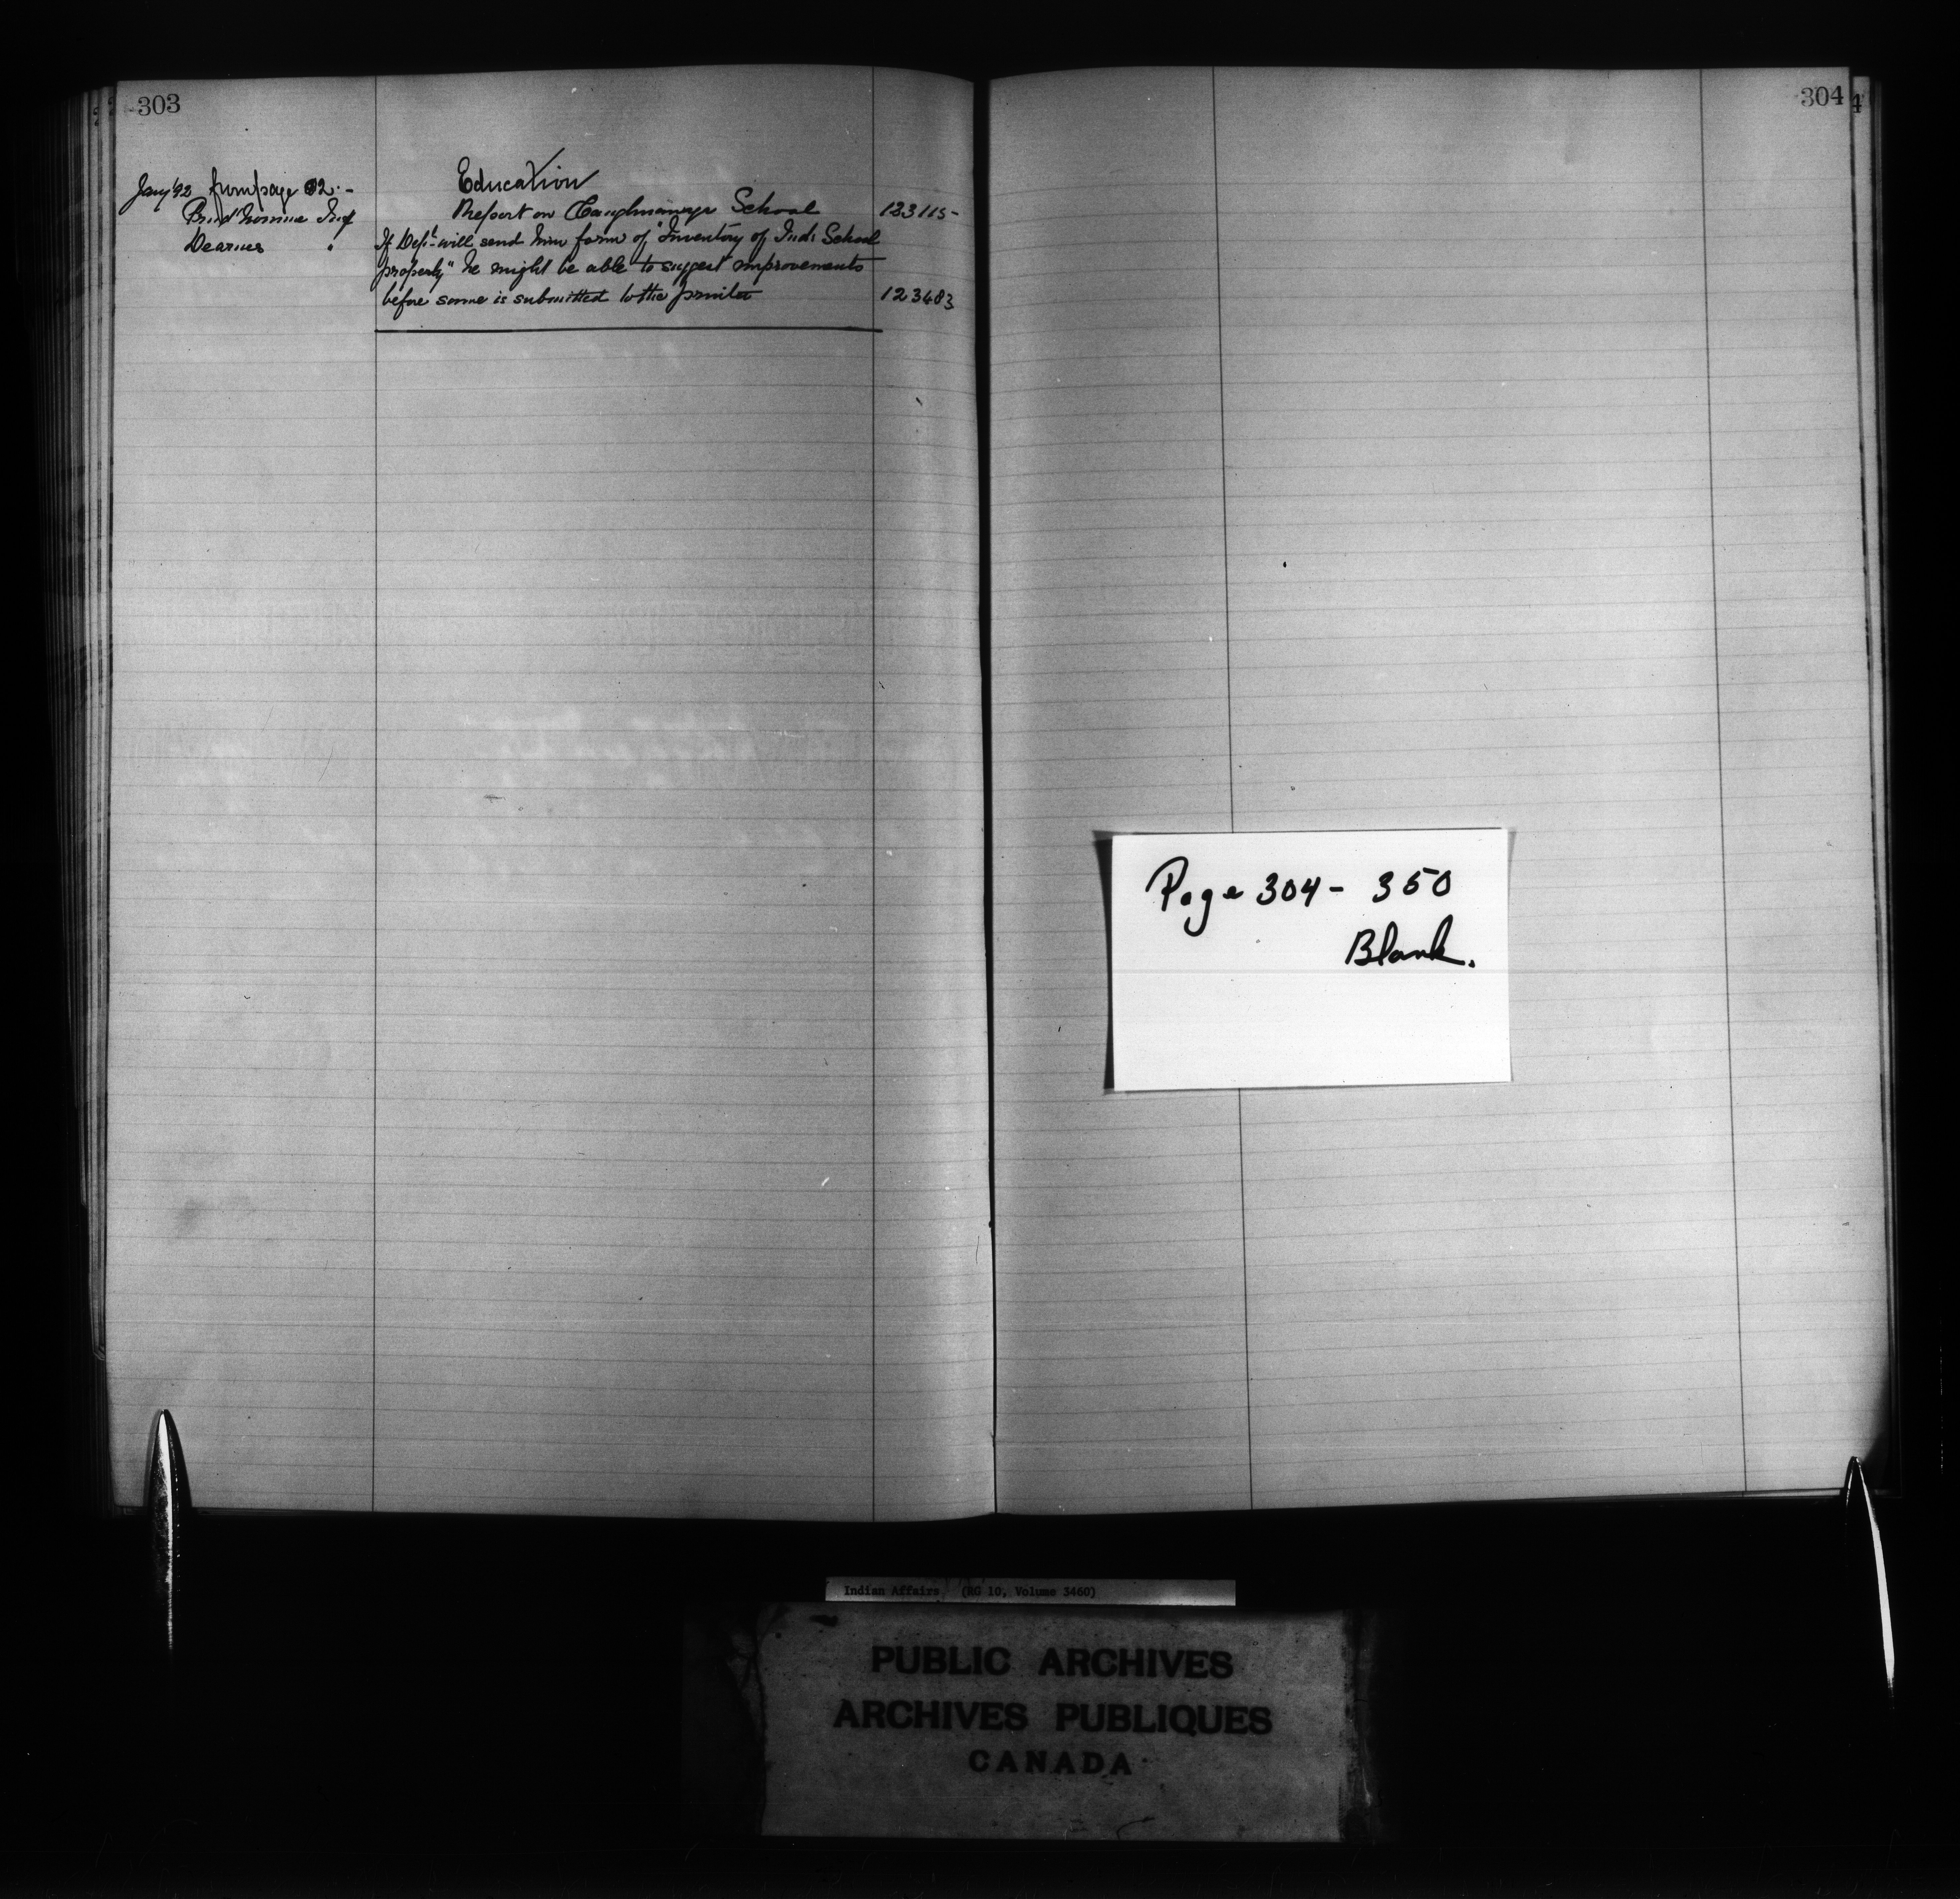 303
304
4
Education
Jany '92 from page 02. -
Prud'homme Insp Report on Caughnawaga School 123115 -
Dearnes " If Dept. will send him form of "Inventory of Ind: School
property" he might be able to suggest improvements
before same is submitted to the printer 123483
Page 304 - 350
Blank.
Indian Affairs (RG 10, Volume 3460)
PUBLIC ARCHIVES
ARCHIVES PUBLIQUES
CANADA